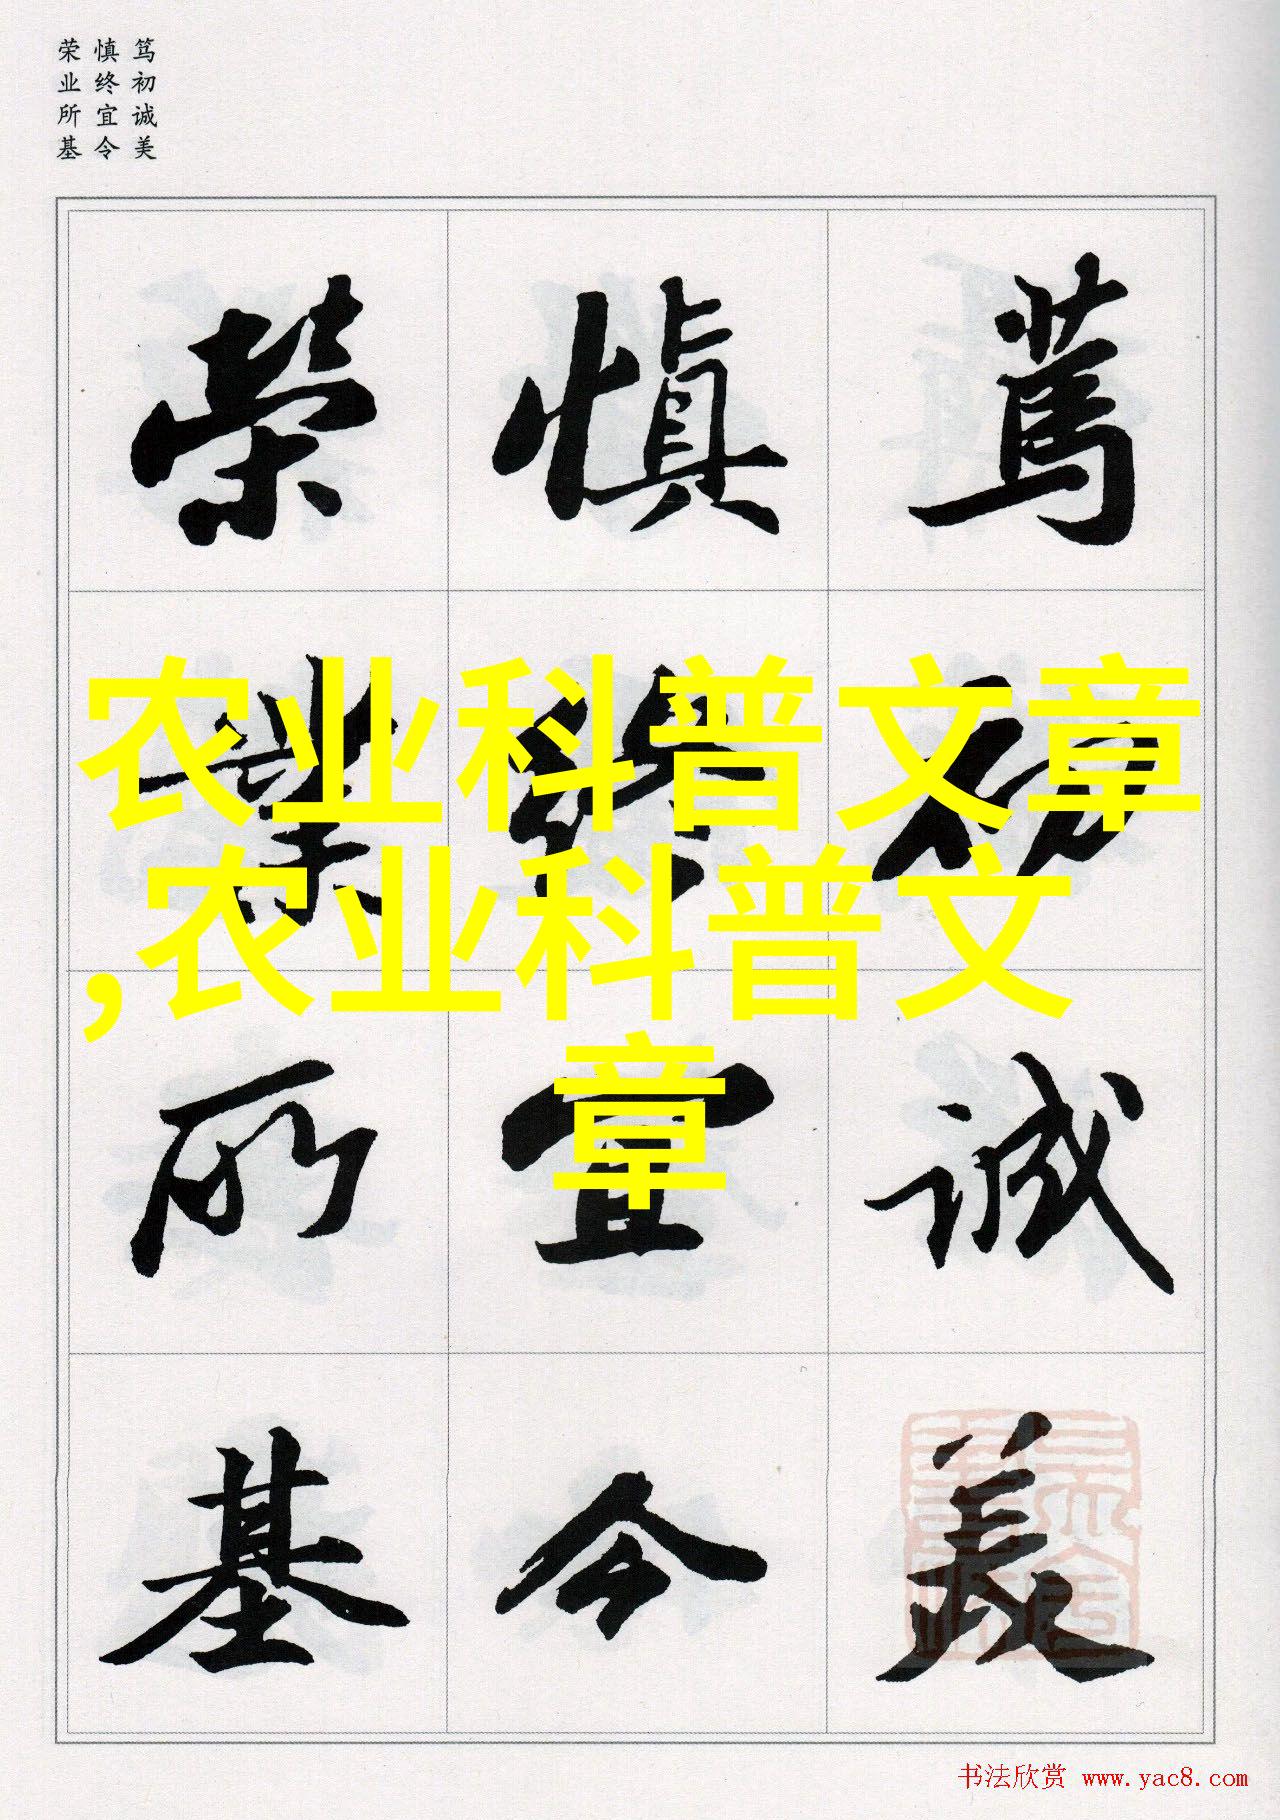 笃初诚美
慎终宜令
荣业所基
篤初诚美
慎终宜令
榮業所基
农业科普文章
,农业科普文
章
书法欣赏 www.yac8.com